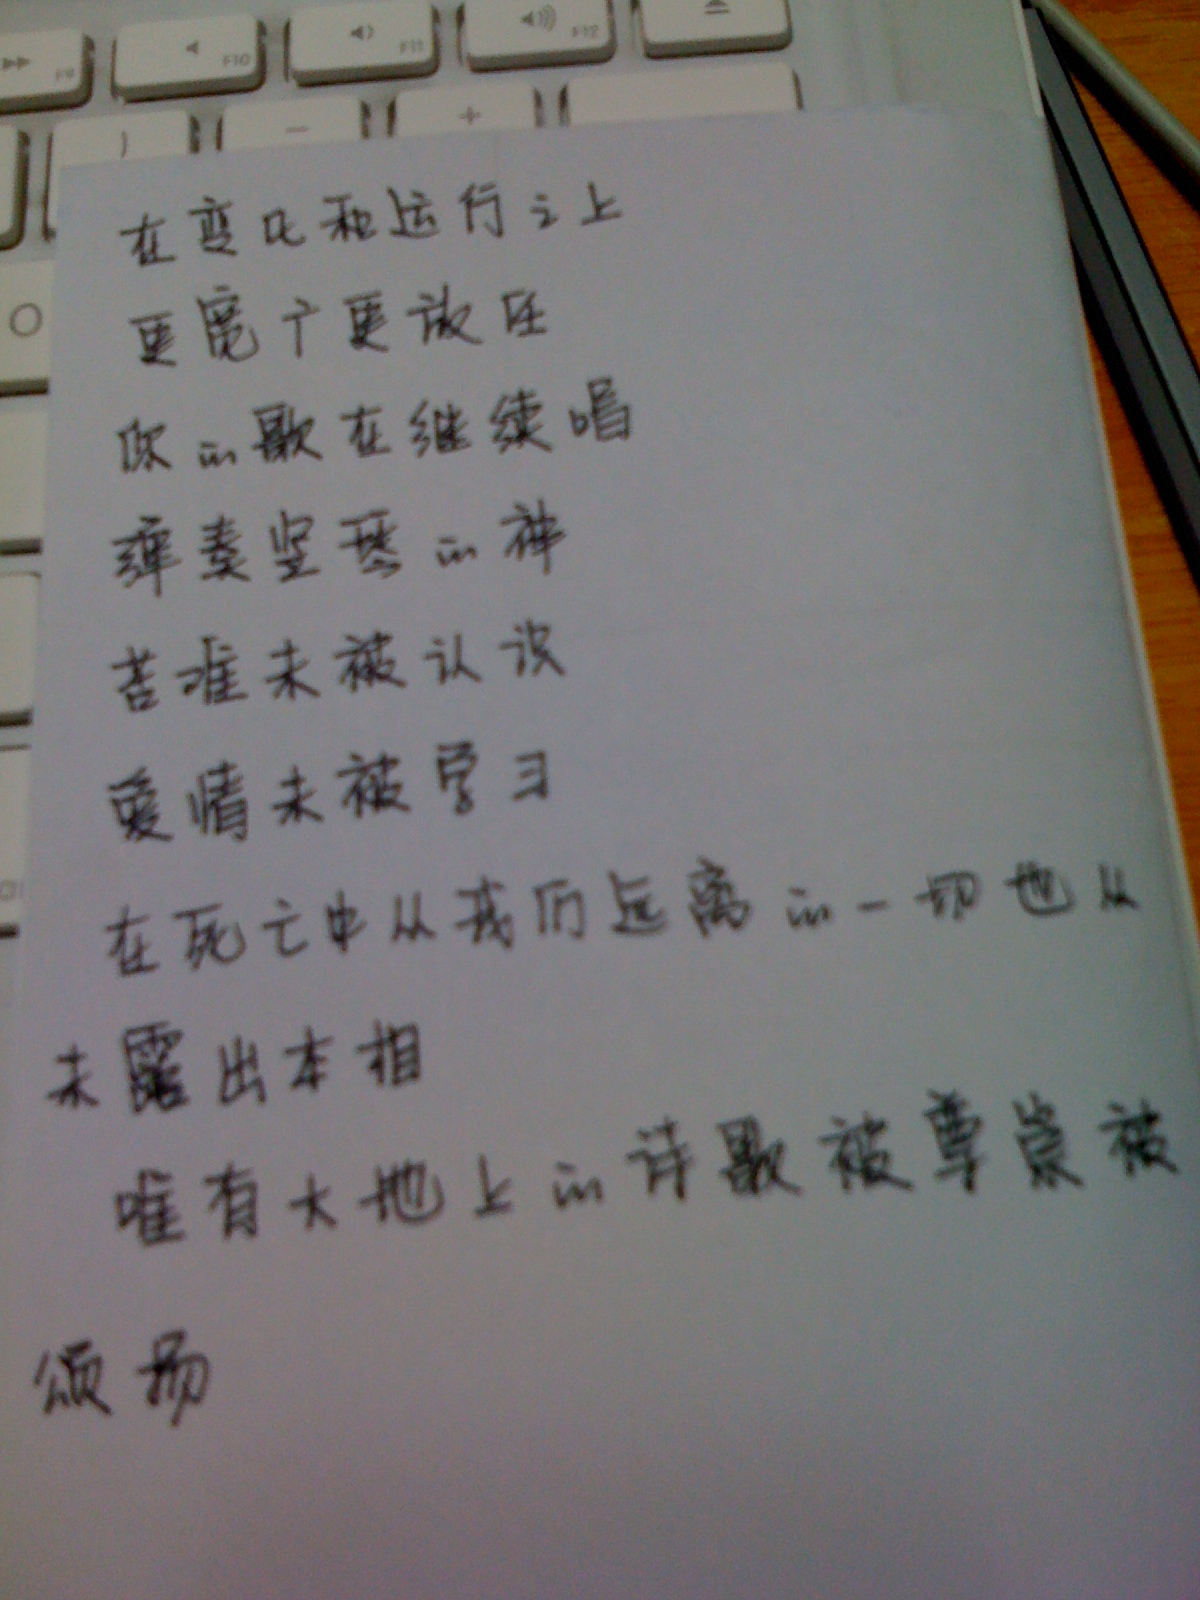 F9 F10 F11 F12
) - +
O
在变化和运行之上
更宽广更放任
你的歌在继续唱
弹奏竖琴的神
苦难未被认识
爱情未被学习
在死亡中从我们远离的一切也从
未露出本相
唯有大地上的诗歌被尊崇被
颂扬